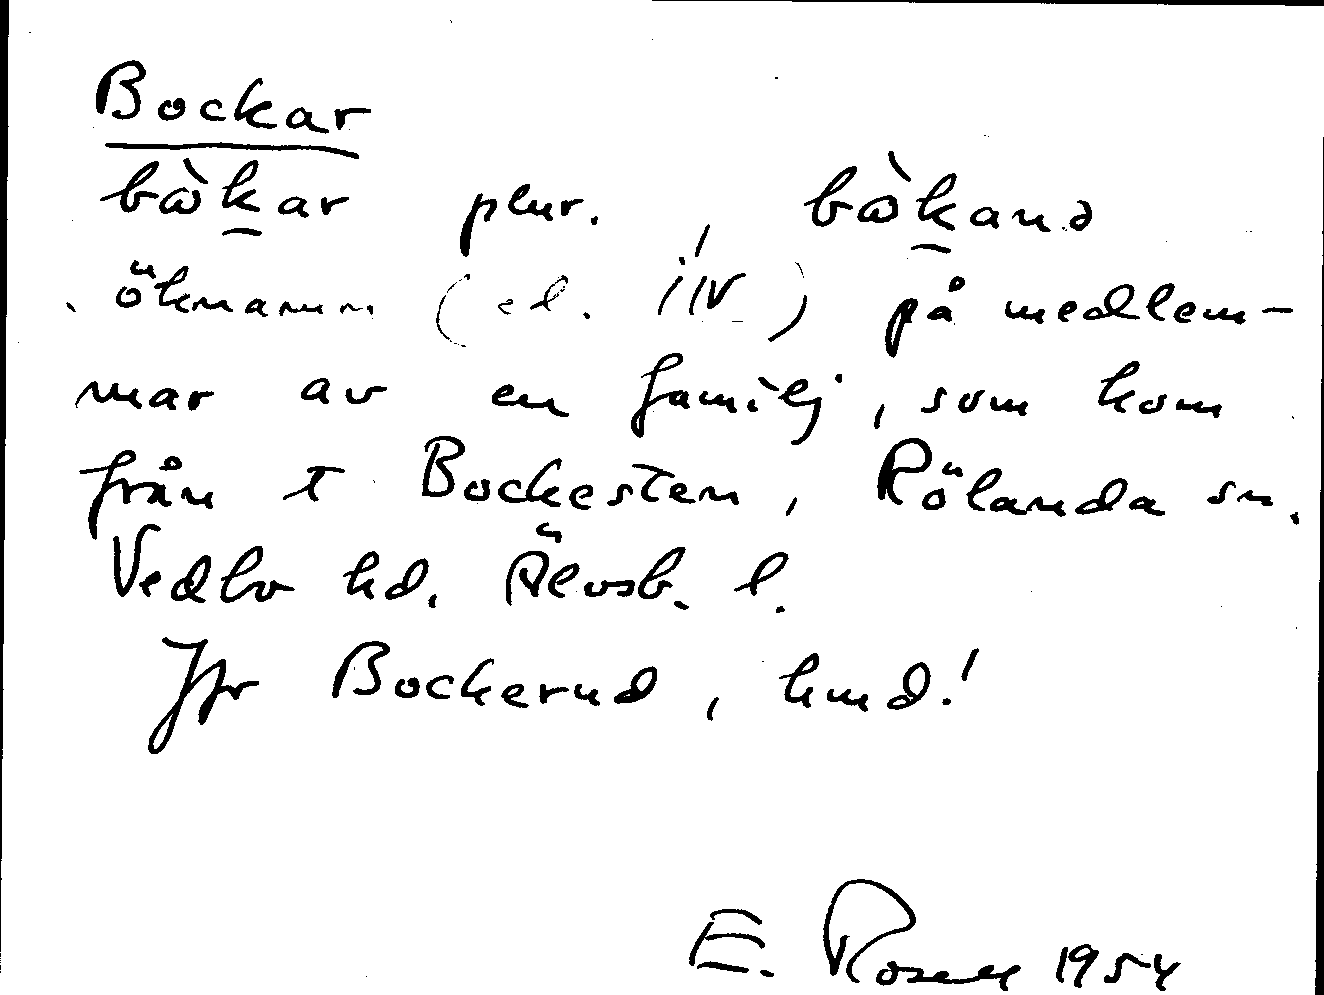 Bockar
bὼkar plur., bὼkanə
öknamn (ed. ) på medlem-
mar av en familj, som kom
från t Bockesten, Rölanda sn.
Vedbo hd. Älvsb. l.
Jfr Bockerud, hmd!
E. Rosell 1954